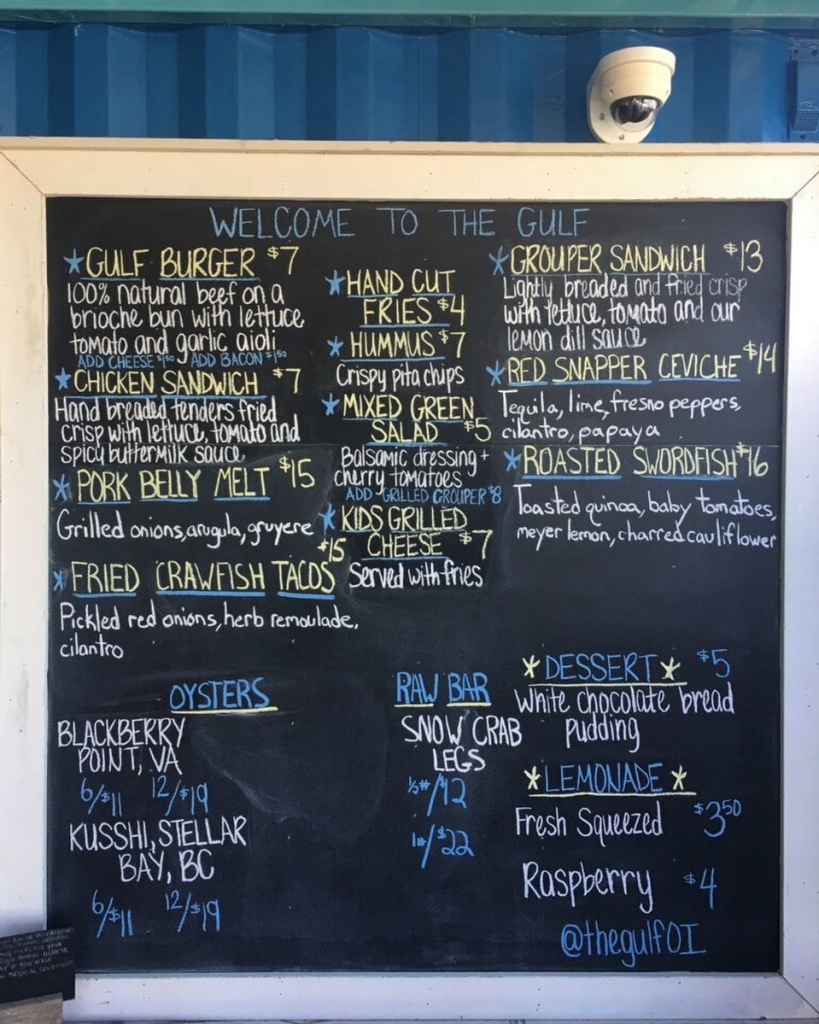 WELCOME TO THE GULF
*GULF BURGER $7
100% natural beef on a
brioche bun with lettuce,
tomato and garlic aioli
ADD CHEESE $1.50 ADD BACON $1.50
*CHICKEN SANDWICH $7
Hand breaded tenders fried
crisp with lettuce, tomato and
spicy buttermilk sauce
*PORK BELLY MELT $15
Grilled onions, arugula, gruyere
*FRIED CRAWFISH TACOS $15
Pickled red onions, herb remoulade,
cilantro
*HAND CUT
FRIES $4
*HUMMUS $7
Crispy pita chips
*MIXED GREEN
SALAD $5
Balsamic dressing +
cherry tomatoes
ADD GRILLED GROUPER $8
*KIDS GRILLED
CHEESE $7
Served with fries
*GROUPER SANDWICH $13
Lightly breaded and fried crisp
with lettuce, tomato and our
lemon dill sauce
*RED SNAPPER CEVICHE $14
Tequila, lime, fresno peppers,
cilantro, papaya
*ROASTED SWORDFISH $16
Toasted quinoa, baby tomatoes,
meyer lemon, charred cauliflower
OYSTERS
BLACKBERRY
POINT, VA
6/$11 12/$19
KUSSHI, STELLAR
BAY, BC
6/$11 12/$19
RAW BAR
SNOW CRAB
LEGS
½#/$12
1#/$22
*DESSERT* $5
White chocolate bread
pudding
*LEMONADE*
Fresh Squeezed $3.50
Raspberry $4
@thegulfOI